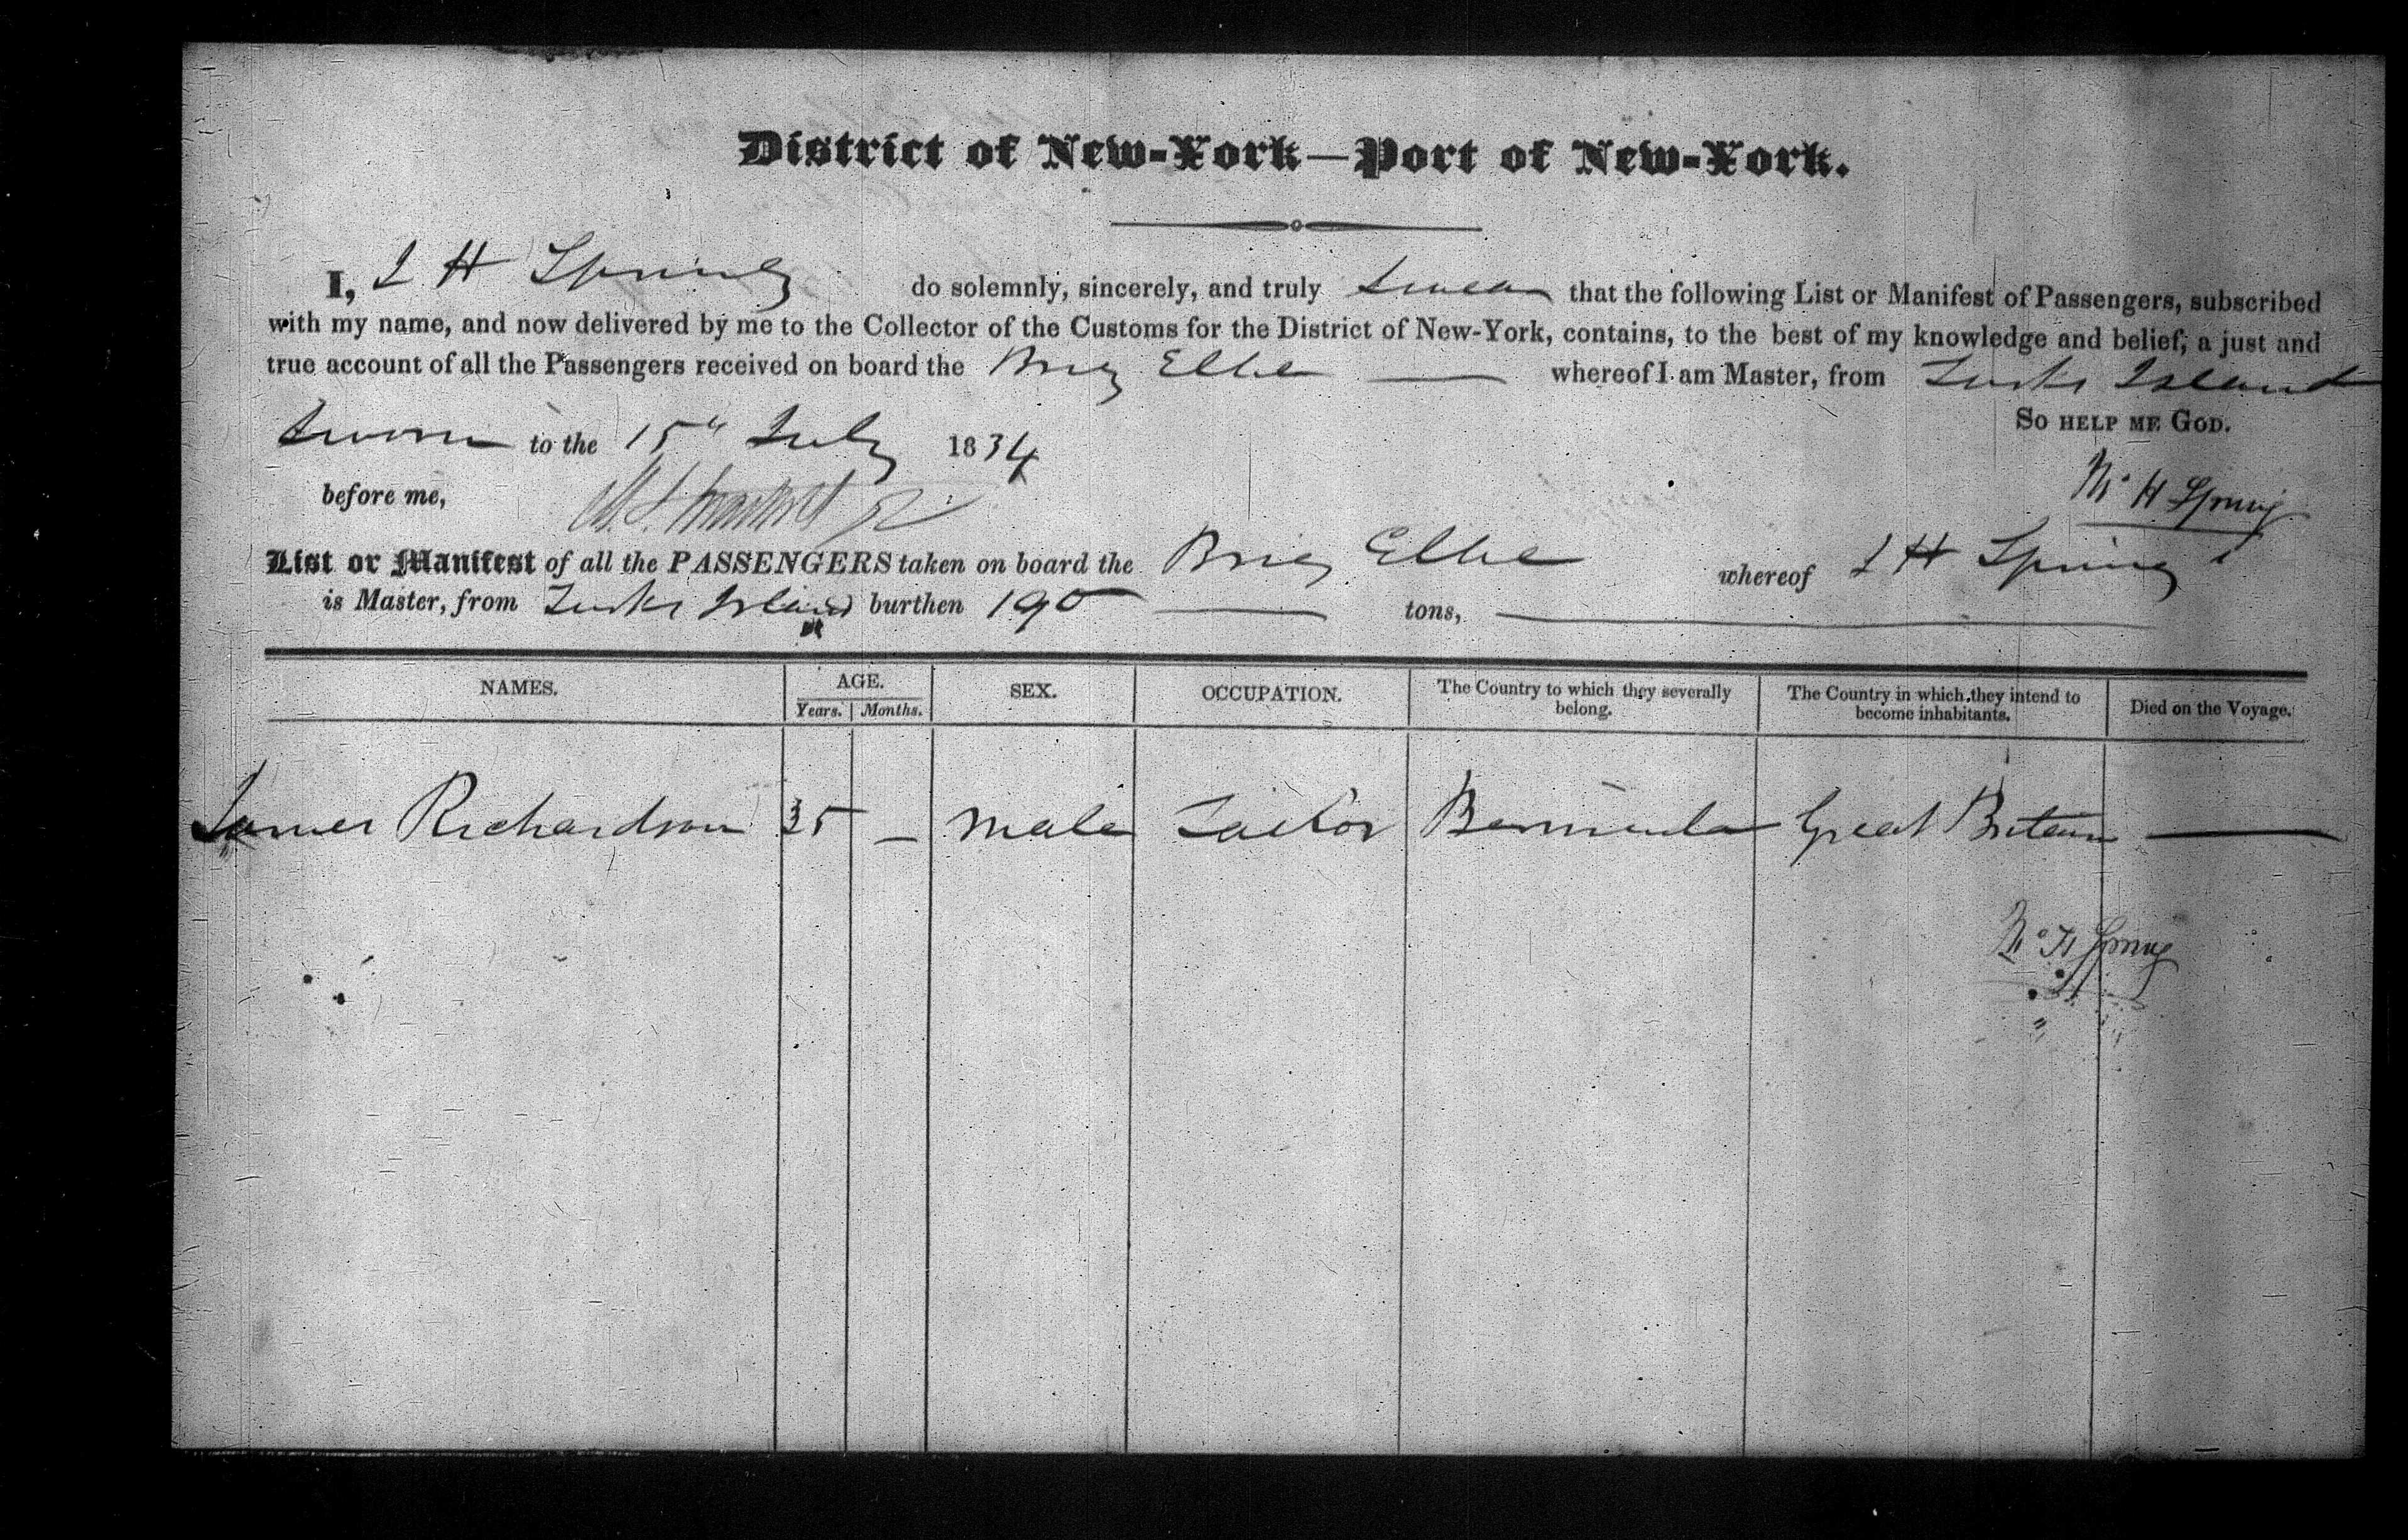 District of New-York—Port of New-York.
I, I H Spring do solemnly, sincerely, and truly swear that the following List or Manifest of Passengers, subscribed
with my name, and now delivered by me to the Collector of the Customs for the District of New-York, contains, to the best of my knowledge and belief, a just and
true account of all the Passengers received on board the Brig Elbe — whereof I am Master, from Turks Island
So help me God.
Sworn to the 15" July 1834
Wm H Spring
before me,
List or Manifest of all the PASSENGERS taken on board the Brig Elbe whereof I H Spring
is Master, from Turks Island burthen 190 — tons, —
NAMES. AGE. SEX. OCCUPATION. The Country to which they severally belong. The Country in which they intend to become inhabitants. Died on the Voyage.
Years. Months.
James Richardson 35 — Male Tailor Bermuda Great Britain —
Wm H Spring